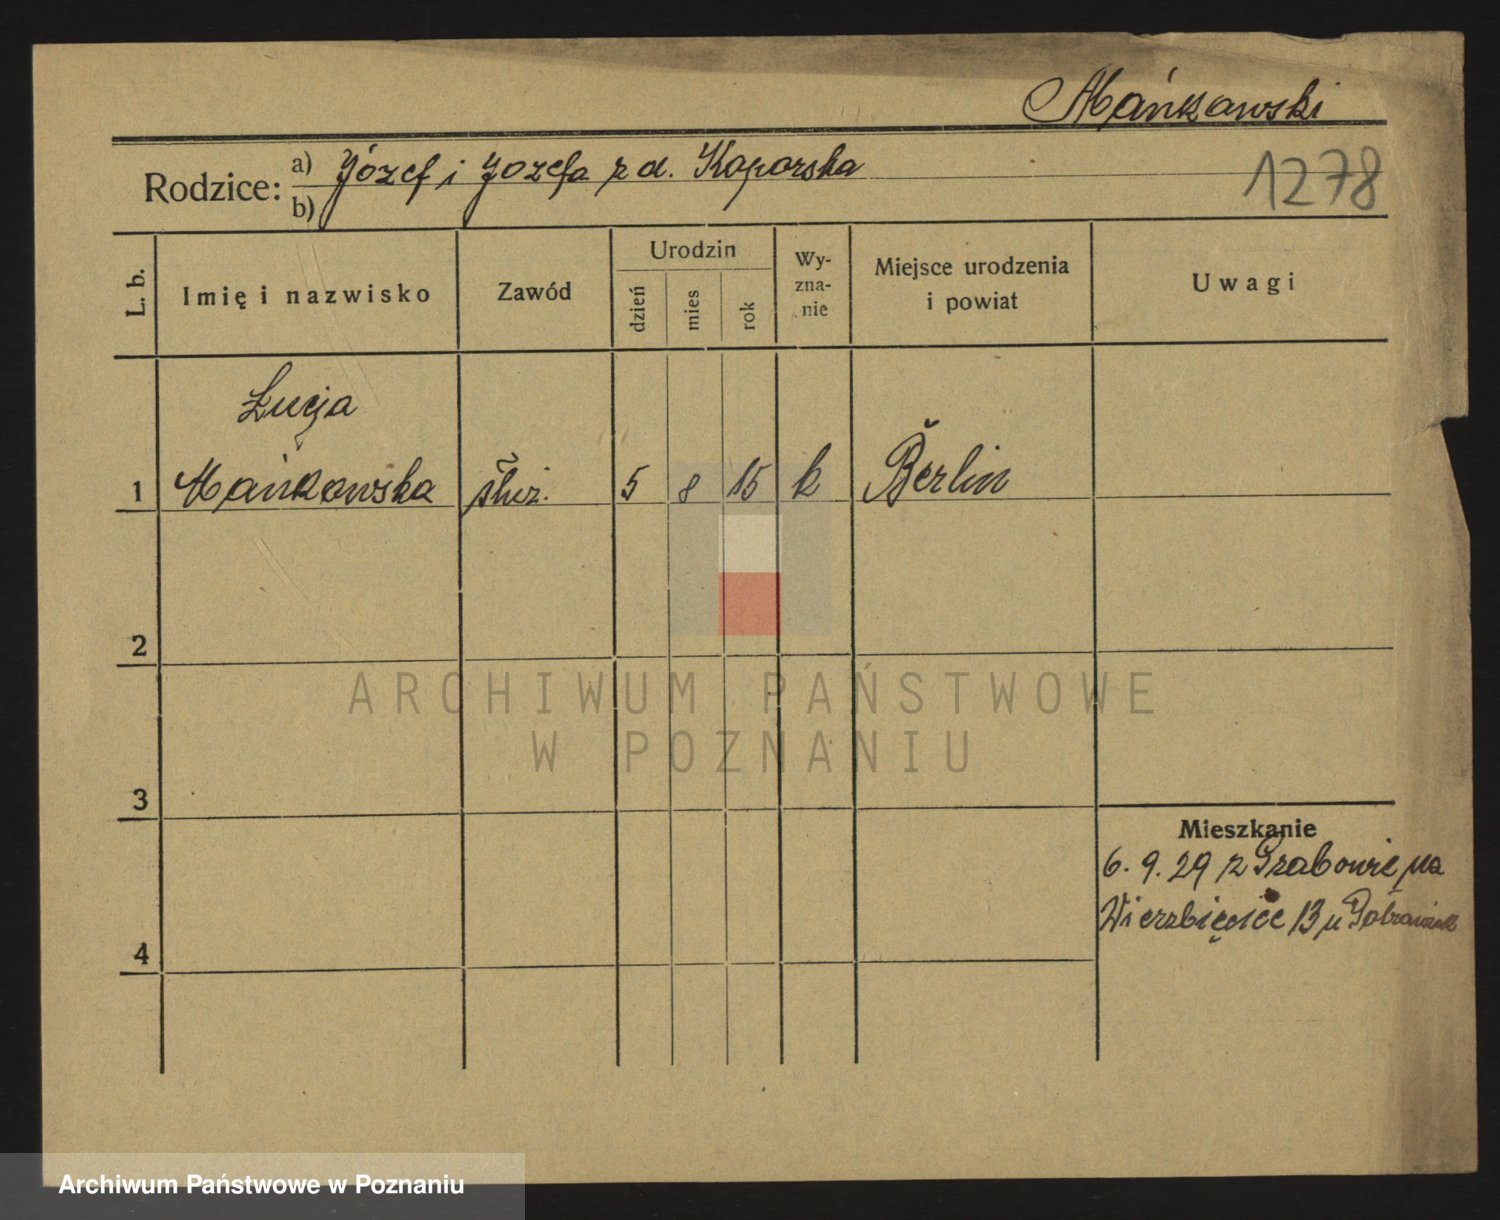 Mańkowski
Rodzice: a) Józef i Jozefa z d. Koporska
b)
1278
L. b.
Imię i nazwisko
Zawód
Urodzin
dzień
mies
rok
Wy-
zna-
nie
Miejsce urodzenia
i powiat
Uwagi
Łucja
1 Mańkowska służ. 5 8 15 k Berlin
2
ARCHIWUM PAŃSTWOWE
W POZNANIU
3
Mieszkanie
6. 9. 29 z Grabowie na
Wierzbięcice 13 u
4
Archiwum Państwowe w Poznaniu